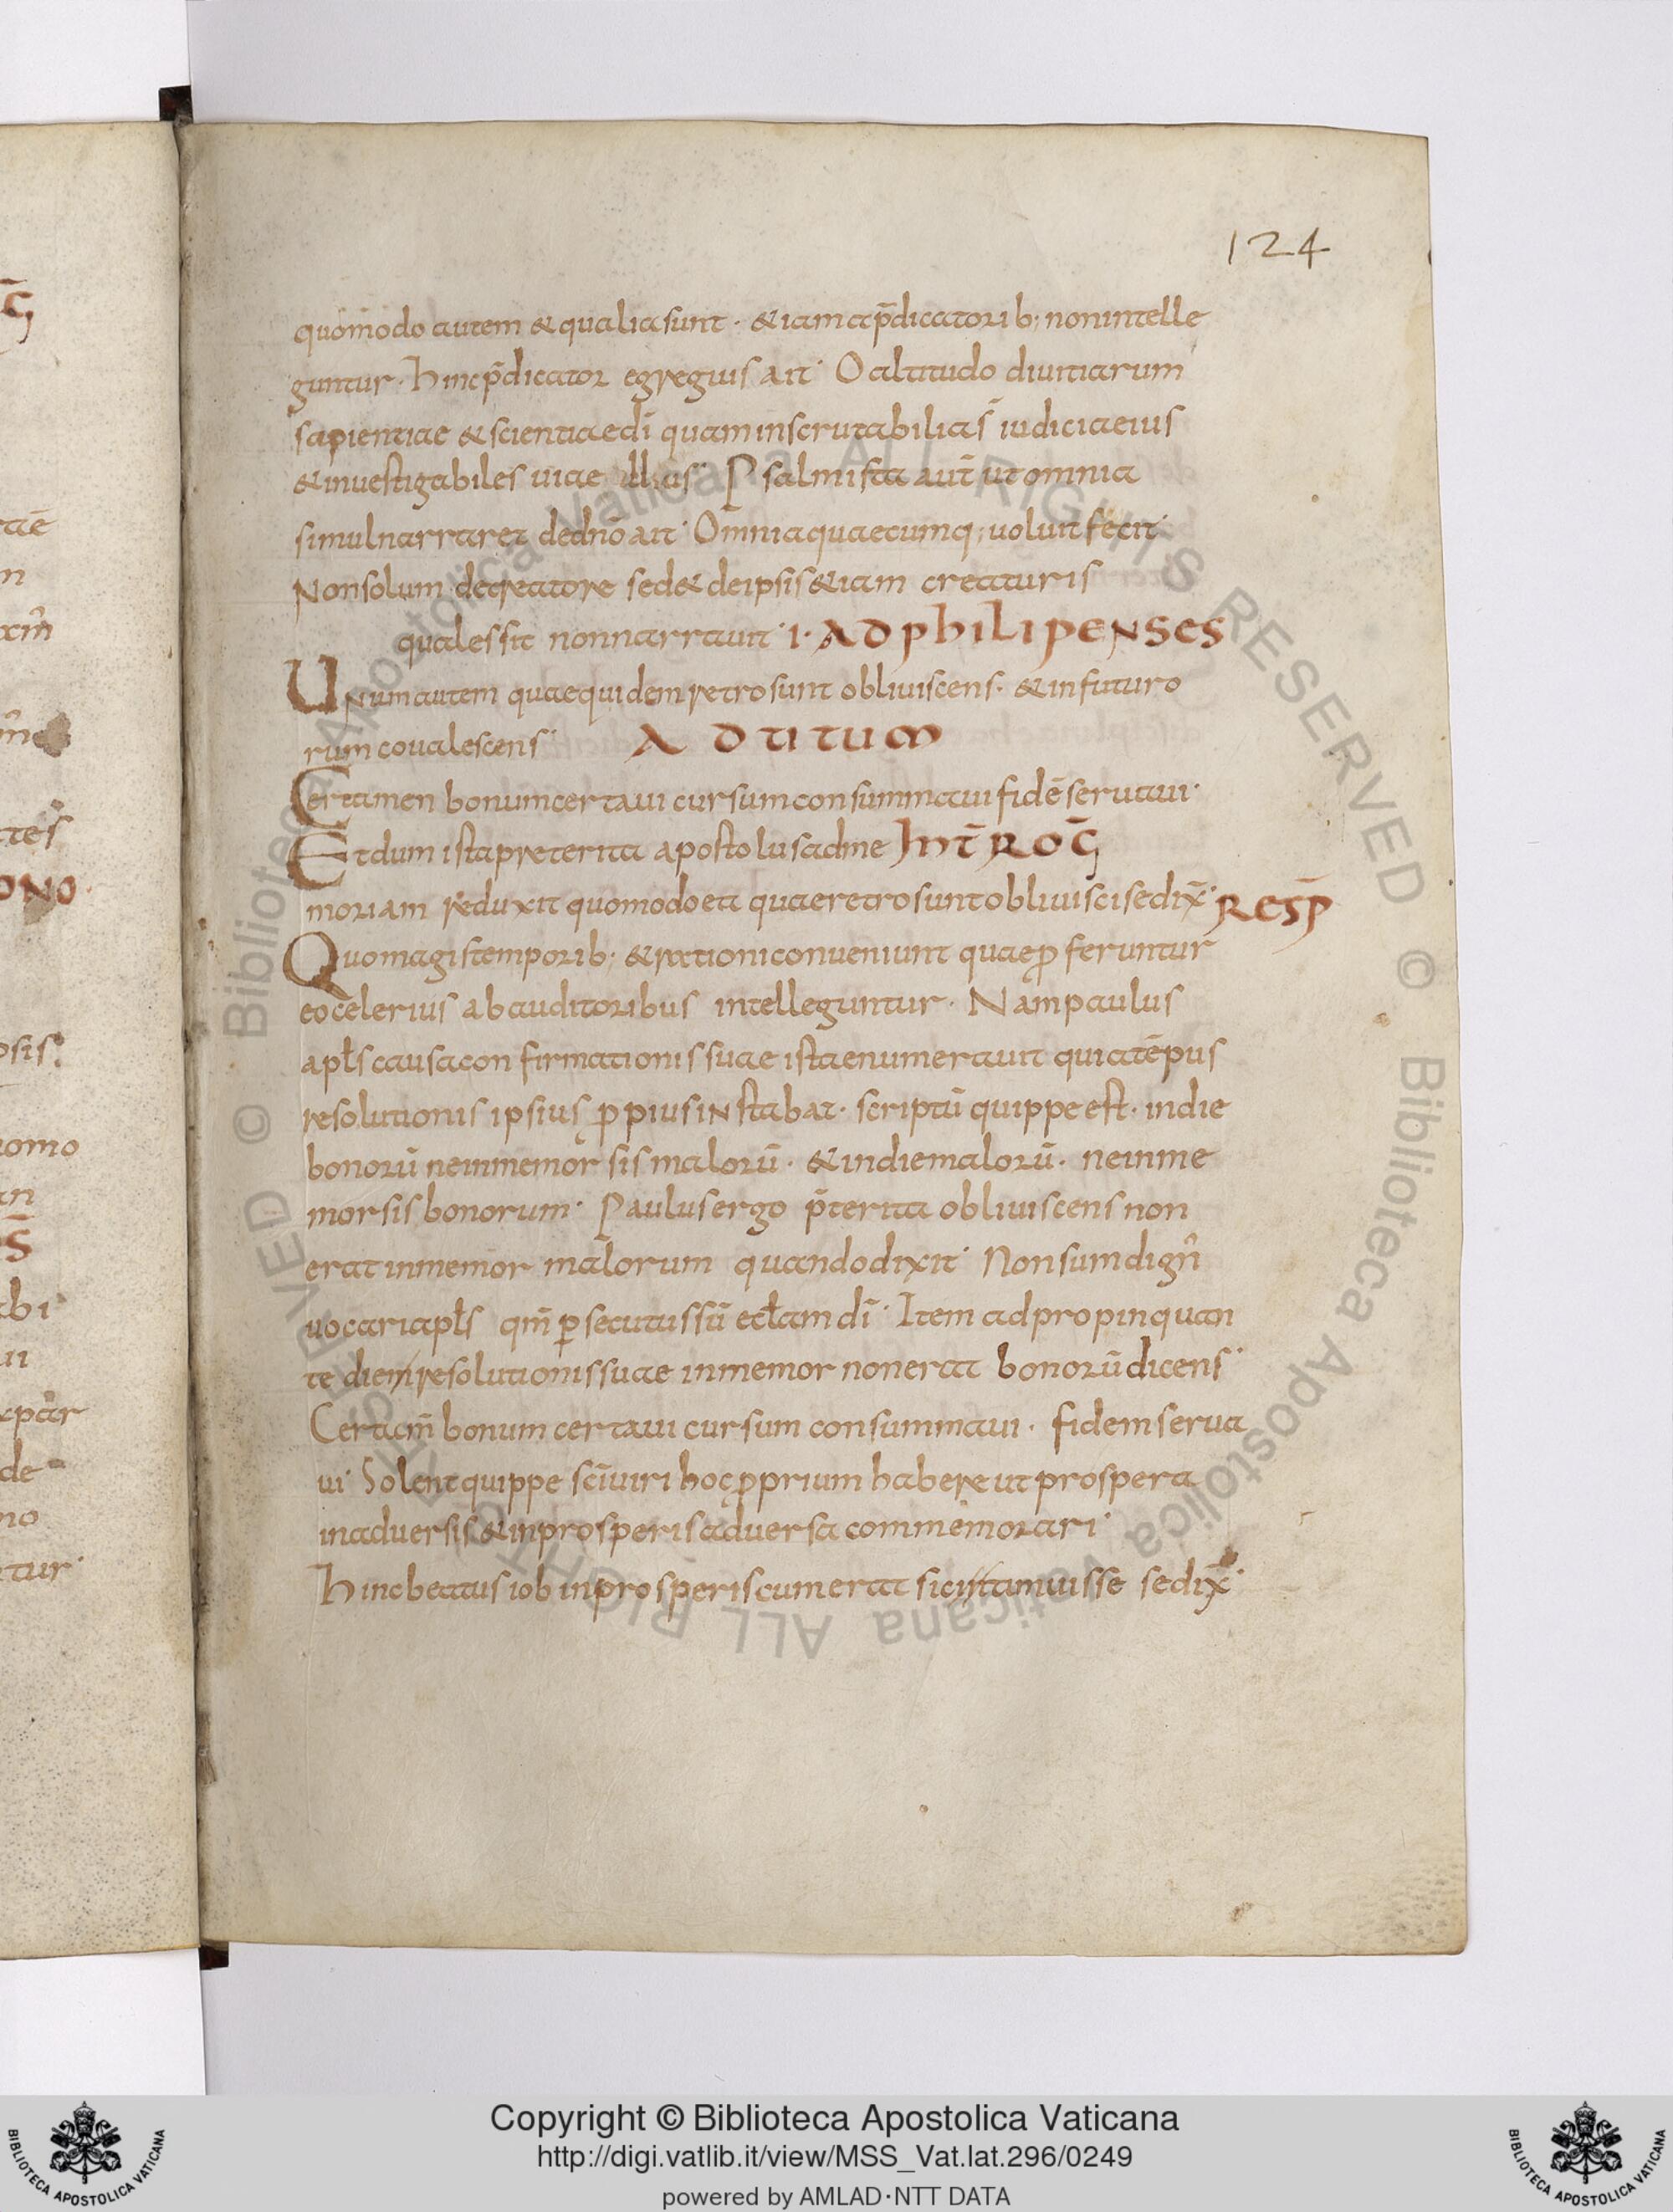 124
quomodo autem & qualia sunt · & iam a p̄dicatorib; non intelle
guntur · hinc p̄dicator egregius ait· O altitudo diuitiarum
sapientiae & scientiae dī quam inscrutabilia s̄ iudicia eius
& inuestigabiles uiae illius· Psalmista aut̄ ut omnia
simul narraret de dn̄o ait· Omnia quaecumq; uoluit fecit·
Non solum de creatore sed & de ipsis & iam creaturis
quales sit non narrauit· I· AD PHILIPENSES
Unum autem quae quidem retro sunt obliuiscens· & in futuro
rum coualescens· AD TITUM
Certamen bonum certaui cursum consummaui fidē seruaui·
Et dum ista preterita apostolus ad me INT̄ROḠ
moriam reduxit quomodo ea quae retro sunt obliuisci se dix̄· RESP̄
Quo magis temporib· & rationi conueniunt quae ꝓferuntur
eo celerius ab auditoribus intelleguntur· Nam paulus
apl̄s causa confirmationis suae ista enumerauit quia tēpus
resolutionis ipsius ꝓpius instabat· scriptū quippe est· in die
bonorū ne inmemor sis malorū· & in die malorū· ne inme
mor sis bonorum· Paulus ergo p̄terita obliuiscens non
erat inmemor malorum quando dixit· Non sum dign̄
uocari apl̄s qm̄ ꝑsecutus sū ecl̄am dī· Item adpropinquan
te diem resolutionis suae inmemor non erat bonorū dicens·
Certam̄ bonum certaui cursum consummaui· fidem serua
ui· Solent quippe sc̄i uiri hoc ꝓprium habere ut prospera
in aduersis & in prosperis aduersa commemorari·
hinc beatus iob in prosperis cum erat sic intamuisse se dix̄·
Copyright © Biblioteca Apostolica Vaticana
http://digi.vatlib.it/view/MSS_Vat.lat.296/0249
powered by AMLAD·NTT DATA